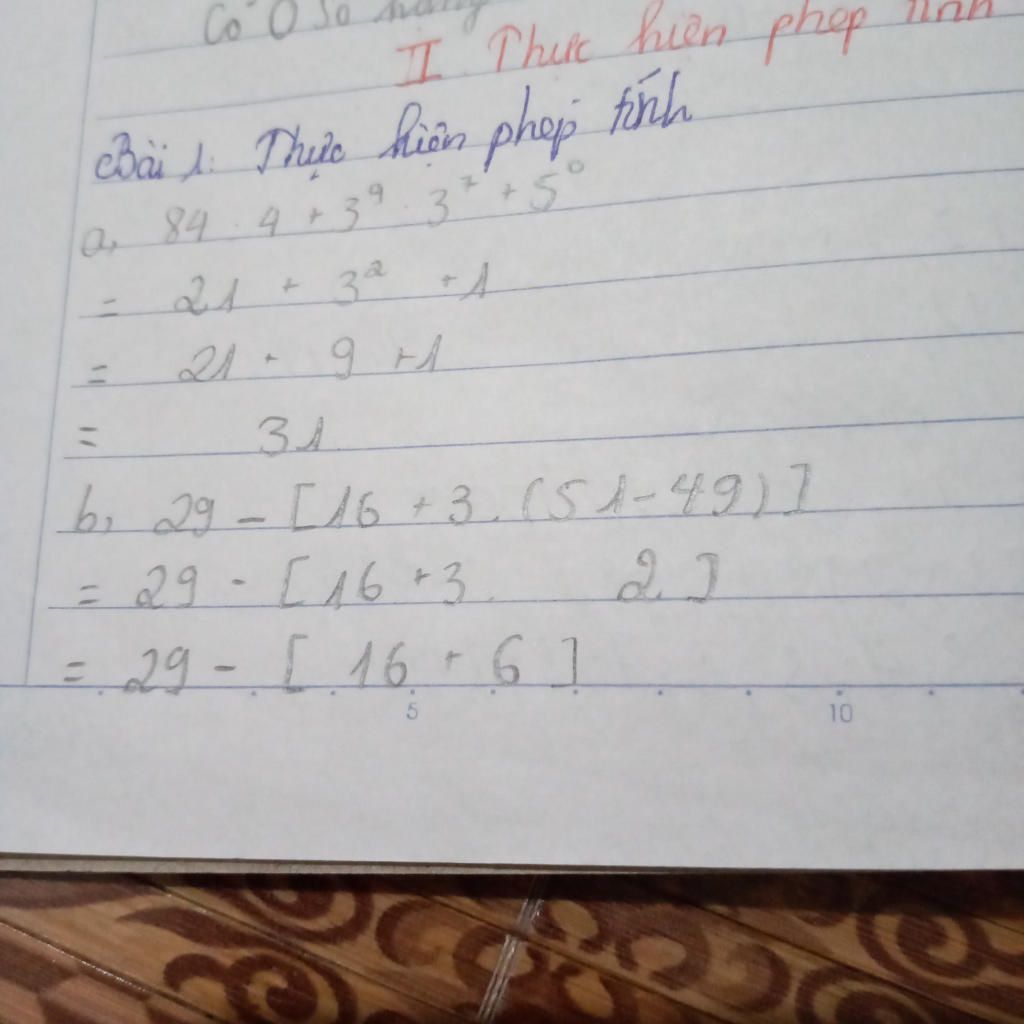 Có 0 số hạng
II. Thực hiện phép tính
Bài 1: Thực hiện phép tính
a, 84 . 4 + 3⁹ . 3⁷ + 5⁰
= 21 + 3² + 1
= 21 + 9 + 1
= 31
b, 29 - [16 + 3. (51-49)]
= 29 - [16 + 3. 2]
= 29 - [16 + 6]
5 10